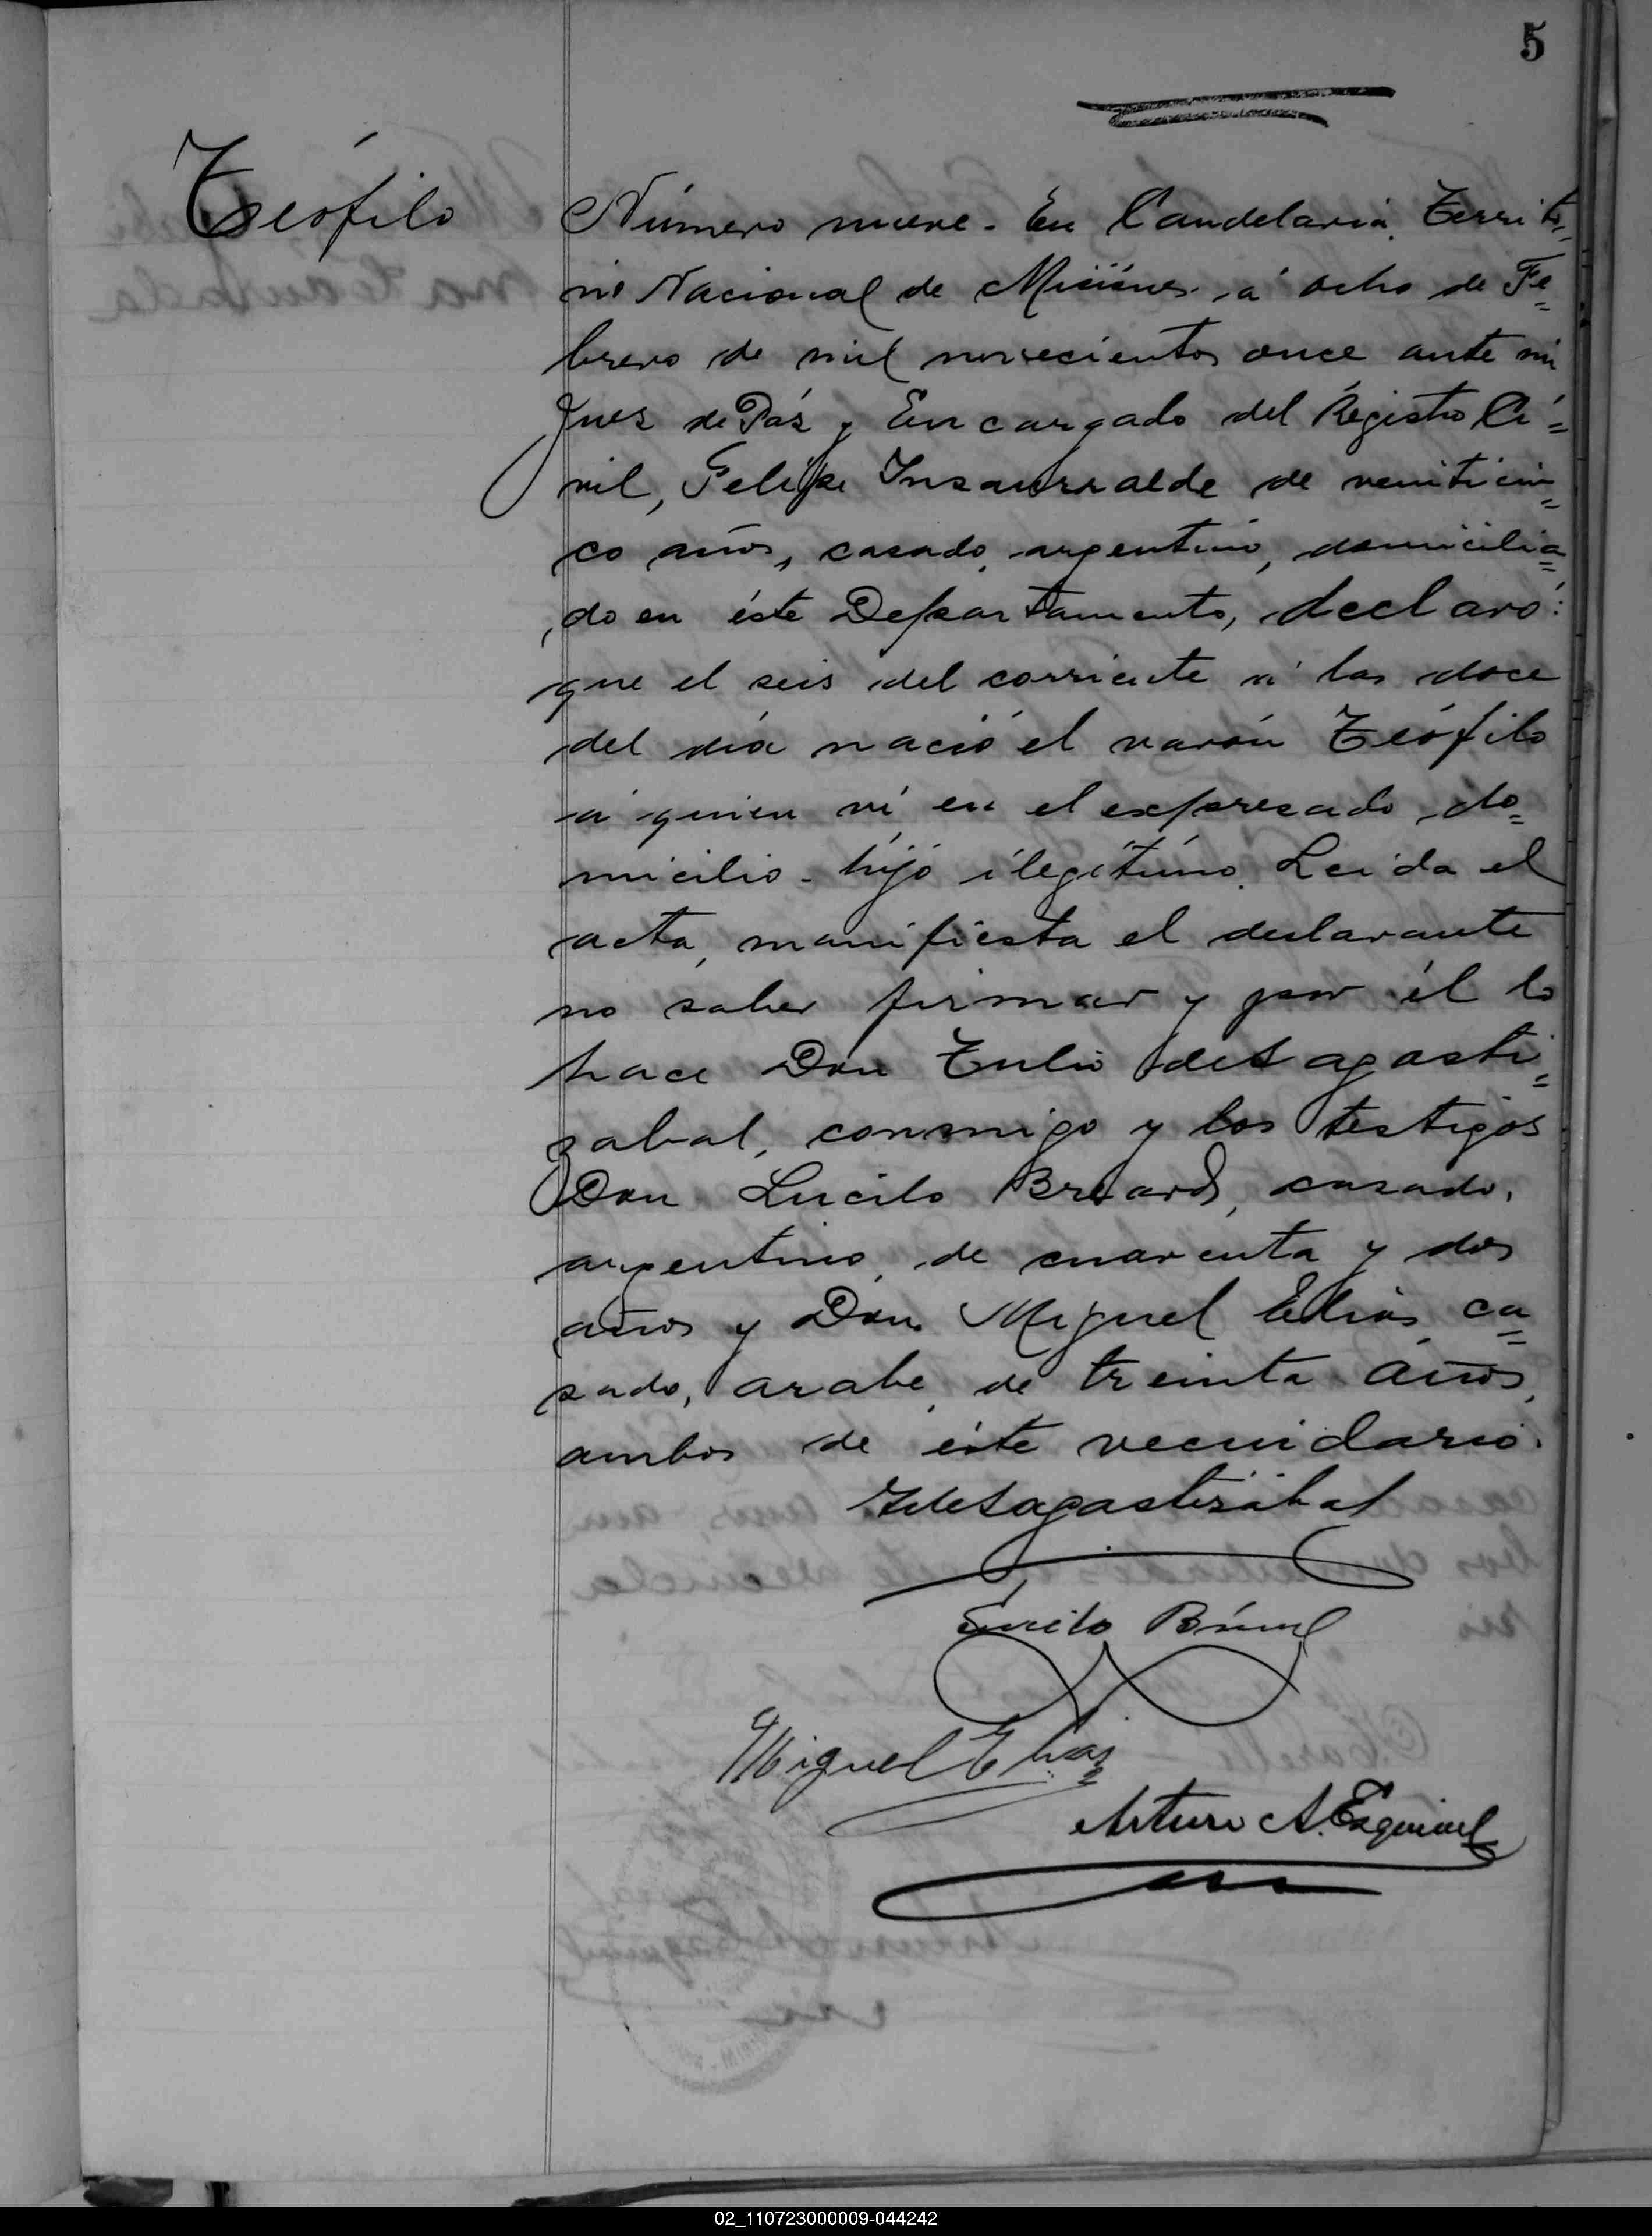 5
Teófilo
Número nueve. En Candelaria, Territo=
rio Nacional de Misiones, á ocho de Fe=
brero de mil novecientos once ante mi
Juez de Páz y Encargado del Registro Ci=
vil, Felipe Insaurralde de veinticin=
co años, casado, argentino, domicilia=
do en éste Departamento, declaró:
que el seis del corriente á las doce
del día nació el varón Teófilo
á quien ví en el expresado do=
micilio - hijo ilegítimo. Leida el
acta, manifiesta el declarante
no saber firmar y por él lo
hace Don Tulio de Sagasti=
zabal, conmigo y los testigos
Don Lucilo Breard, casado,
argentino, de cuarenta y dos
años y Don Miguel Elias, ca=
sado, arabe, de treinta años,
ambos de éste vecindario.
TdeSagastizábal
Lucilo
Miguel Elias
Arturo A. Esquivel
02_110723000009-044242